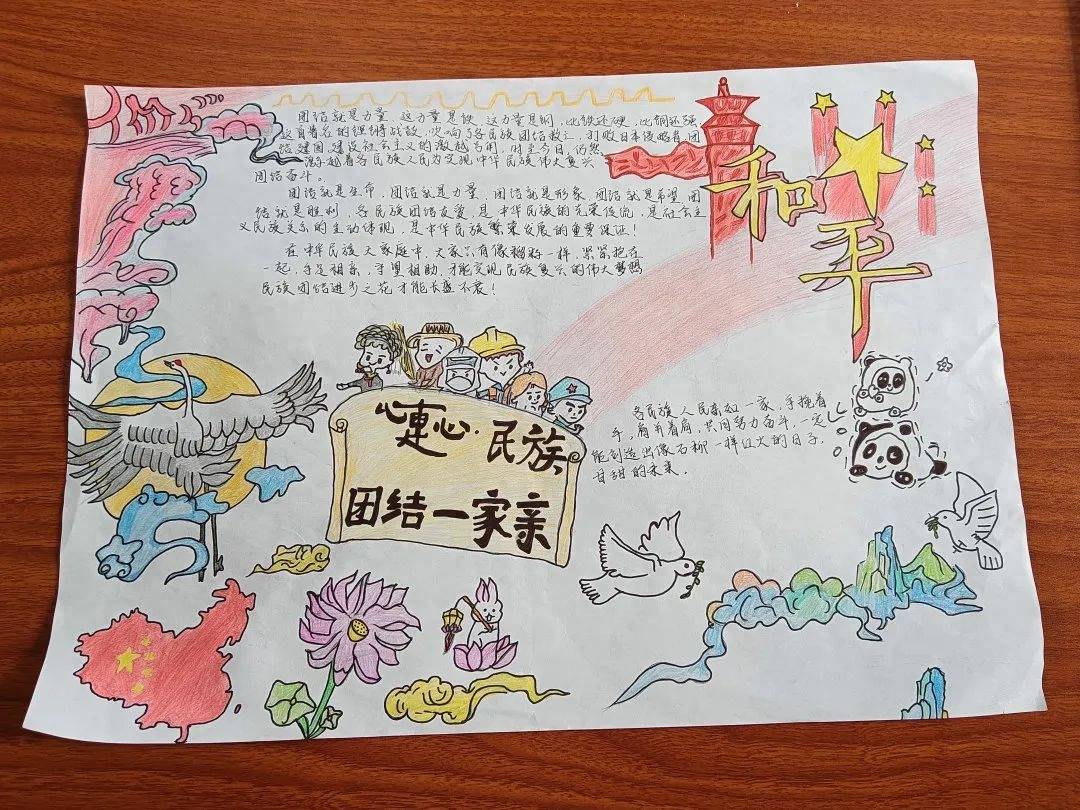 团结就是力量,这力量是铁,这力量是钢,比铁还硬,比钢还强
这首著名的铿锵战歌,吹响了各民族团结救亡,打败日本侵略者,团
结建国,建设社会主义的激越号角,时至今日,仍然
激越着各民族人民为实现中华民族伟大复兴
团结奋斗。
团结就是生命,团结就是力量,团结就是形象,团结就是希望,团
结就是胜利,各民族团结友爱,是中华民族的光荣传统,是社会主
义民族关系的主动体现,是中华民族繁荣发展的重要保证!
在中华民族大家庭中,大家只有像石榴籽一样,紧紧抱在
一起,手足相亲,守望相助,才能实现民族复兴的伟大梦想
民族团结进步之花才能长盛不衰!
和平
心连心·民族
团结一家亲
各民族人民都如一家,手挽着
手,肩并着肩,共同努力奋斗,一定
能创造出像石榴一样红火的日子,
甘甜的未来。